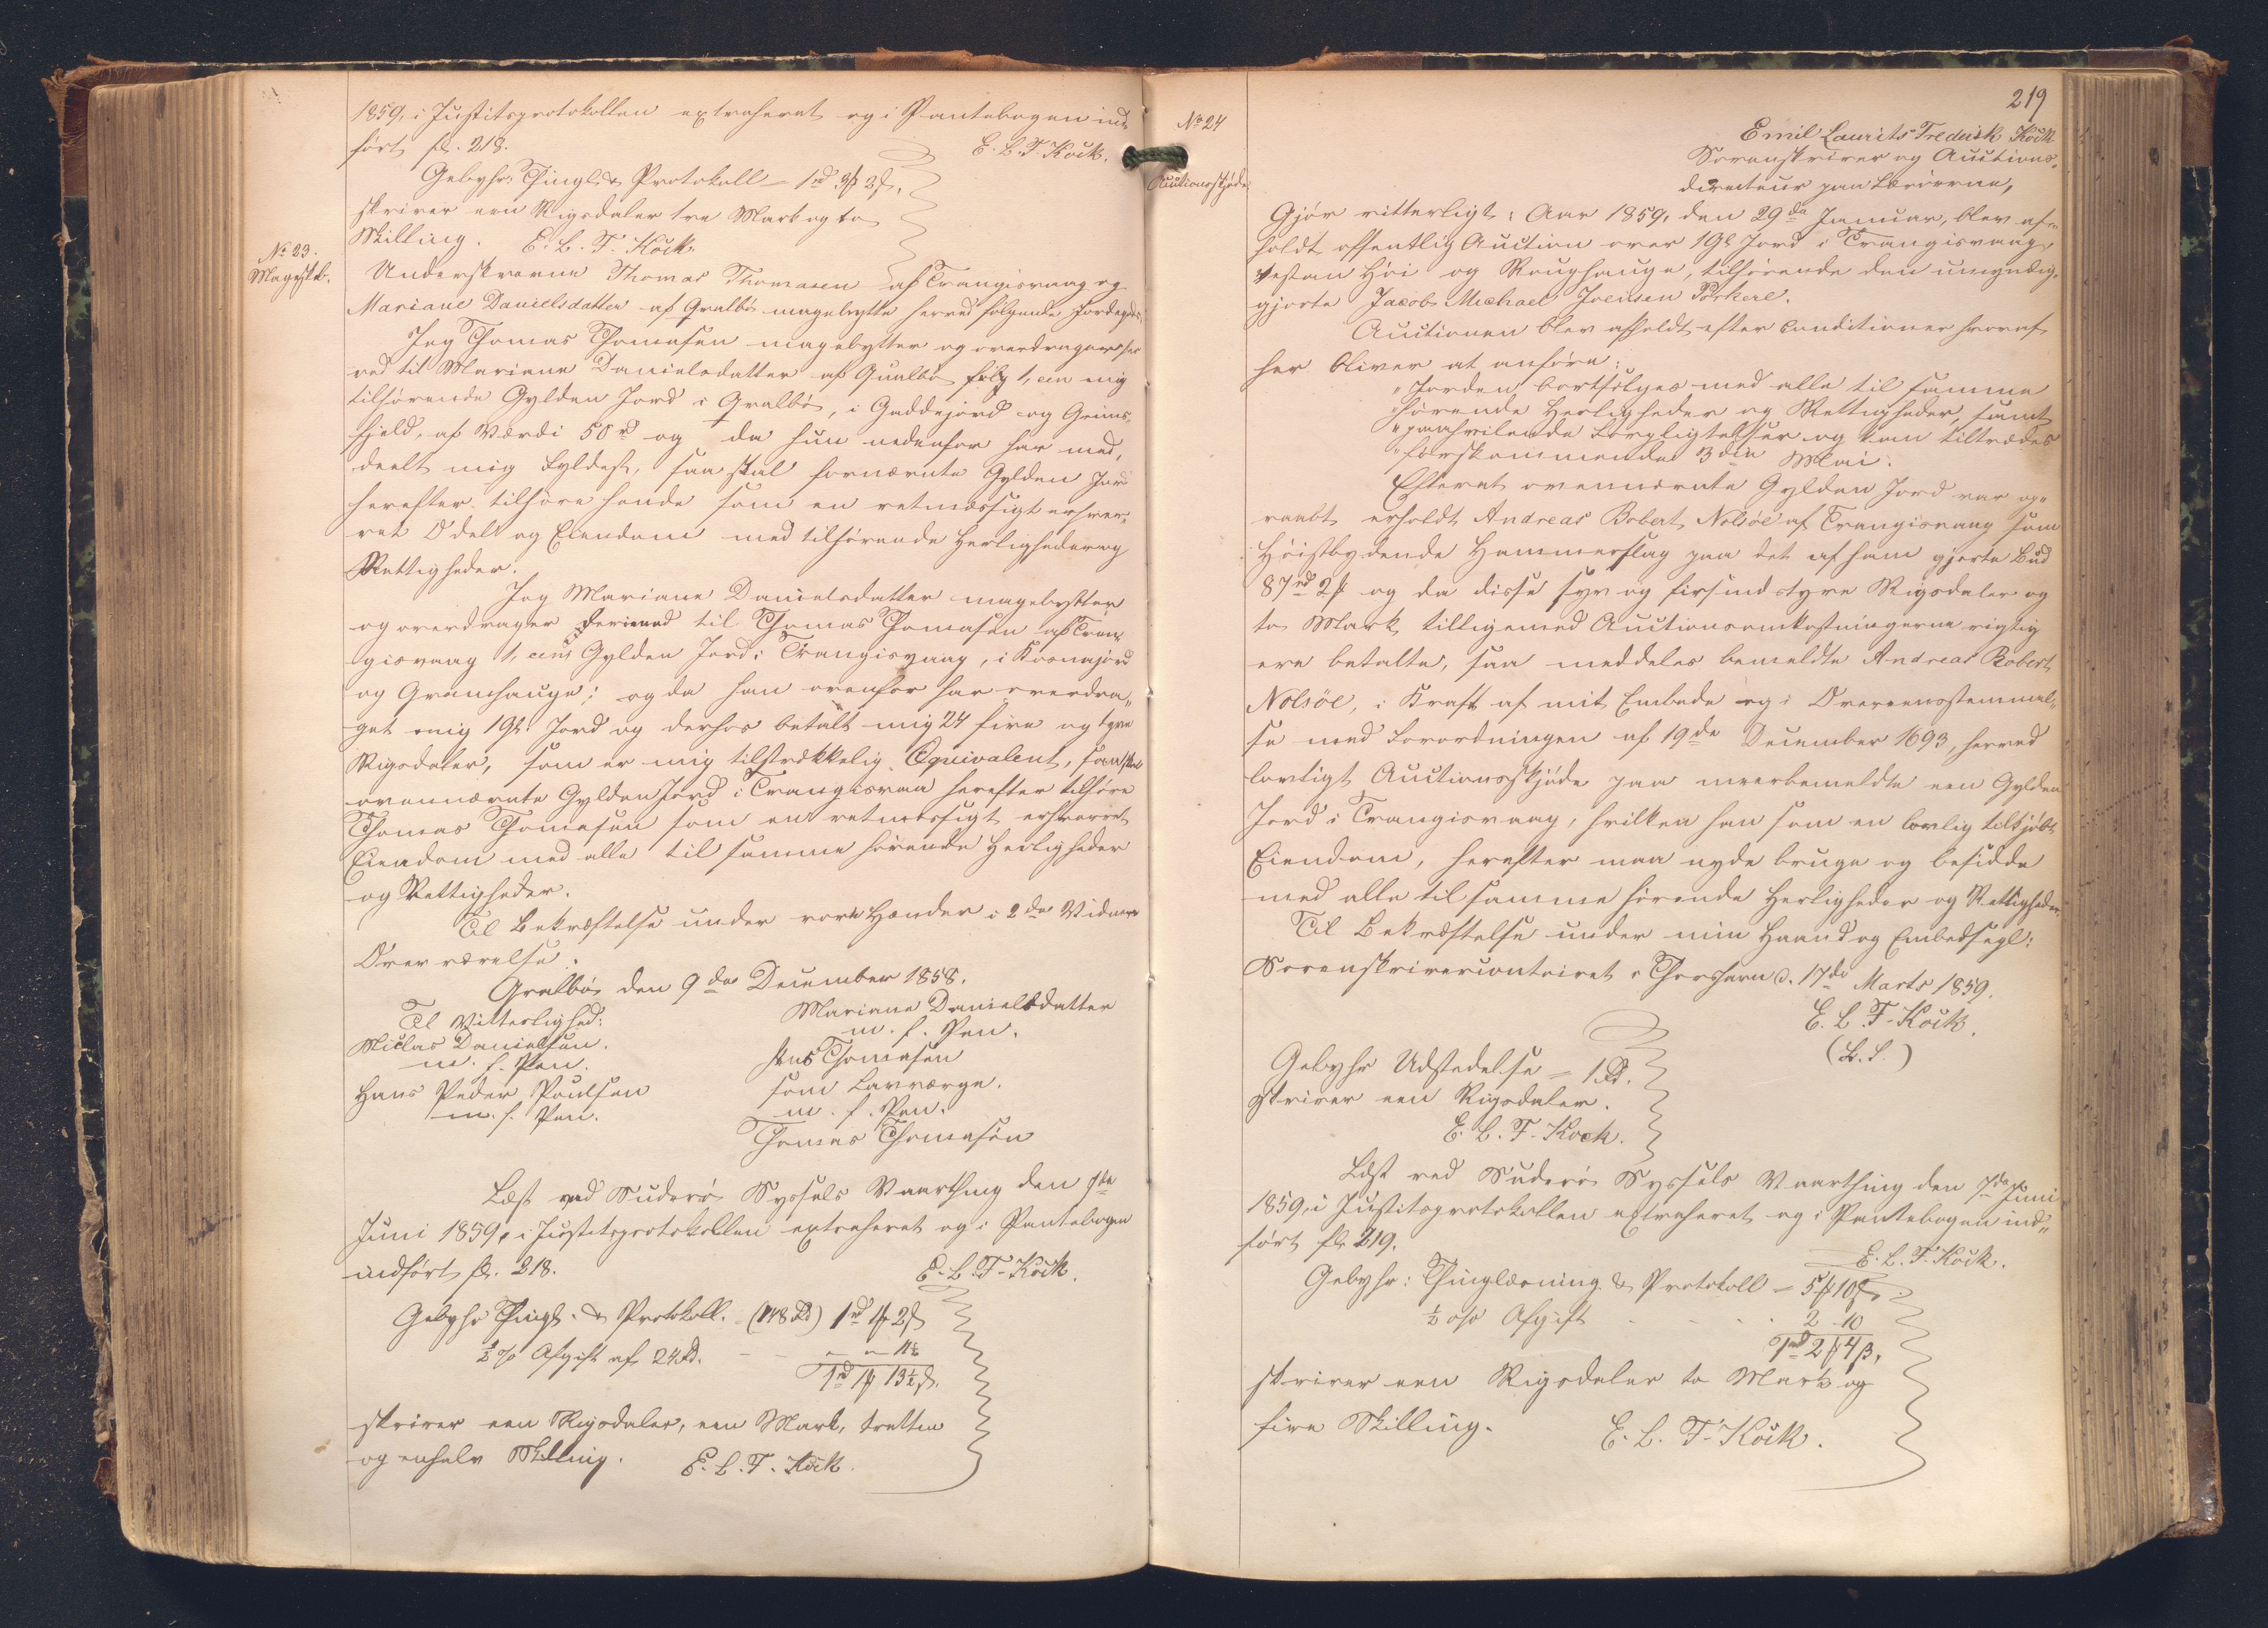 1859, i Justitsprotokollen extraheret og i Pantebogen ind-
ført fol. 218.
E. L. F. Kock.
Gebyhr: Thingl. & Protokoll = 1rd 3 mk 2 s.
skriver een Rigsdaler tre Mark og to
Skilling. E. L. F. Kock.
No 23.
Mageskb.
Underskrevne Thomas Thomasen af Trangisvaag og
Mariane Danielsdatter af Qvalbø magebytte herved følgende Jordegods:
Jeg Thomas Thomasen magebytter og overdrager her-
ved til Mariane Danielsdatter af Qualbø 1, een mig
tilhørende Gylden Jord i Qvalbø, i Gaddejord og Grims-
fjeld, af Værdi 50 rd og da hun nedenfor har med-
deelt mig Fyldest, saa skal fornævnte Gylden Jord
herefter tilhøre hende som en retmæssigt erhver-
vet Odel og Eiendom med tilhørende Herligheder og
Rettigheder.
Jeg Mariane Danielsdatter magebytter
og overdrager derimod til Thomas Thomasen af Tran-
gisvaag 1, een Gylden Jord i Trangisvaag, i Kosnajord
og Grænehauge; og da han ovenfor har overdra-
get mig 1 Gl. Jord og derhos betalt mig 24 fire og tyve
Rigsdaler, som er mig tilstrækkelig Equivalent, saa skal
ovennævnte Gylden Jord i Trangisvaa herefter tilhøre
Thomas Thomasen som en retmæssigt erhvervet
Eiendom med alle til samme hørende Herligheder
og Rettigheder.
Til Bekræftelse under vore Hænder i 2de Vidners
Overværelse.
Qvalbø den 9de December 1858.
Til Vitterlighed: Mariane Danielsdatter
m. f. Pen.
Niclas Danielsen. Jens Thomasen
m. f. Pen. som Lavværge.
Hans Peder Poulsen m. f. Pen.
m. f. Pen. Thomas Thomasen
Læst ved Suderø Syssels Vaarthing den 7de
Juni 1859, i Justitsprotokollen extraheret og i Pantebogen
indført fol. 218.
E. L. F. Kock.
Gebyhr Thingl. & Protokoll. = 1rd 1 mk 2 s
½ % Afgift af 24 Rd. - - " " 11½
1rd 1 mk 13½ s.
skriver een Rigsdaler, een Mark, tretten
og enhalv Skilling. E. L. F. Kock.
219
No 24
Auctionsskjøde
Emil Laurits Frederik Kock
Sorenskriver og Auctions-
directeur paa Færøerne,
Gjør vitterligt: Aar 1859, den 29de Januar, blev af-
holdt offentlig Auction over 1 Gl. Jord i Trangisvaag,
Vestan Høi og Roughauge, tilhørende den umyndig-
gjorte Jacob Michael Joensen Porkere.
Auctionen blev afholdt efter Conditioner hvoraf
her bliver at anføre:
"Jorden bortsælges med alle til samme
"hørende Herligheder og Rettigheder, samt
"paahvilende Forpligtelser og kan tiltrædes
"førstkommende 3die Mai.
Efterat ovennævnte Gylden Jord var op-
raabt erholdt Andreas Robert Nolsøe af Trangisvaag som
Høistbydende Hammerslag paa det af ham gjorte Bud
87rd 2 mk og da disse syv og firsindstyve Rigsdaler og
to Mark tilligemed Auctionsomkostningerne rigtig
ere betalte, saa meddeles bemeldte Andreas Robert
Nolsøe, i Kraft af mit Embede og i Overeensstemmel-
se med Forordningen af 19de December 1693, herved
lovligt Auctionsskjøde paa meerbemeldte een Gylden
Jord i Trangisvaag, hvilken han som en lovlig tilkjøbt
Eiendom, herefter maa nyde bruge og besidde
med alle til samme hørende Herligheder og Rettigheder.
Til Bekræftelse under min Haand og Embedsegl:
Sorenskrivercontoiret i Thorshavn d. 17de Marts 1859.
E. L. F. Kock.
(L. S.)
Gebyhr Udstedelse = 1 Rd.
skriver een Rigsdaler.
E. L. F. Kock.
Læst ved Suderø Syssels Vaarthing den 7de Juni
1859, i Justitsprotokollen extraheret og i Pantebogen ind-
ført fol 219.
E. L. F. Kock.
Gebyhr: Thinglæsning & Protokoll = 5 mk 10 s.
½ % Afgift - - - 2 - 10
1rd 2 mk 4 s,
skriver een Rigsdaler to Mark og
fire Skilling. E. L. F. Kock.